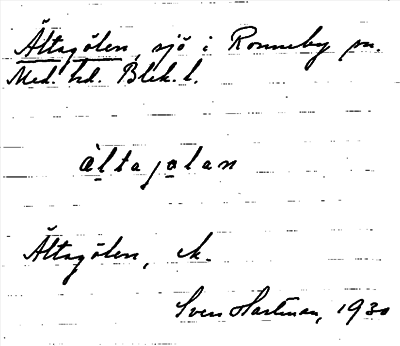 Ältagölen, sjö i Ronneby sn.
Med. hd. Blek. l.
àltajolan
Ältagölen, K.
Sven Hartman, 1930